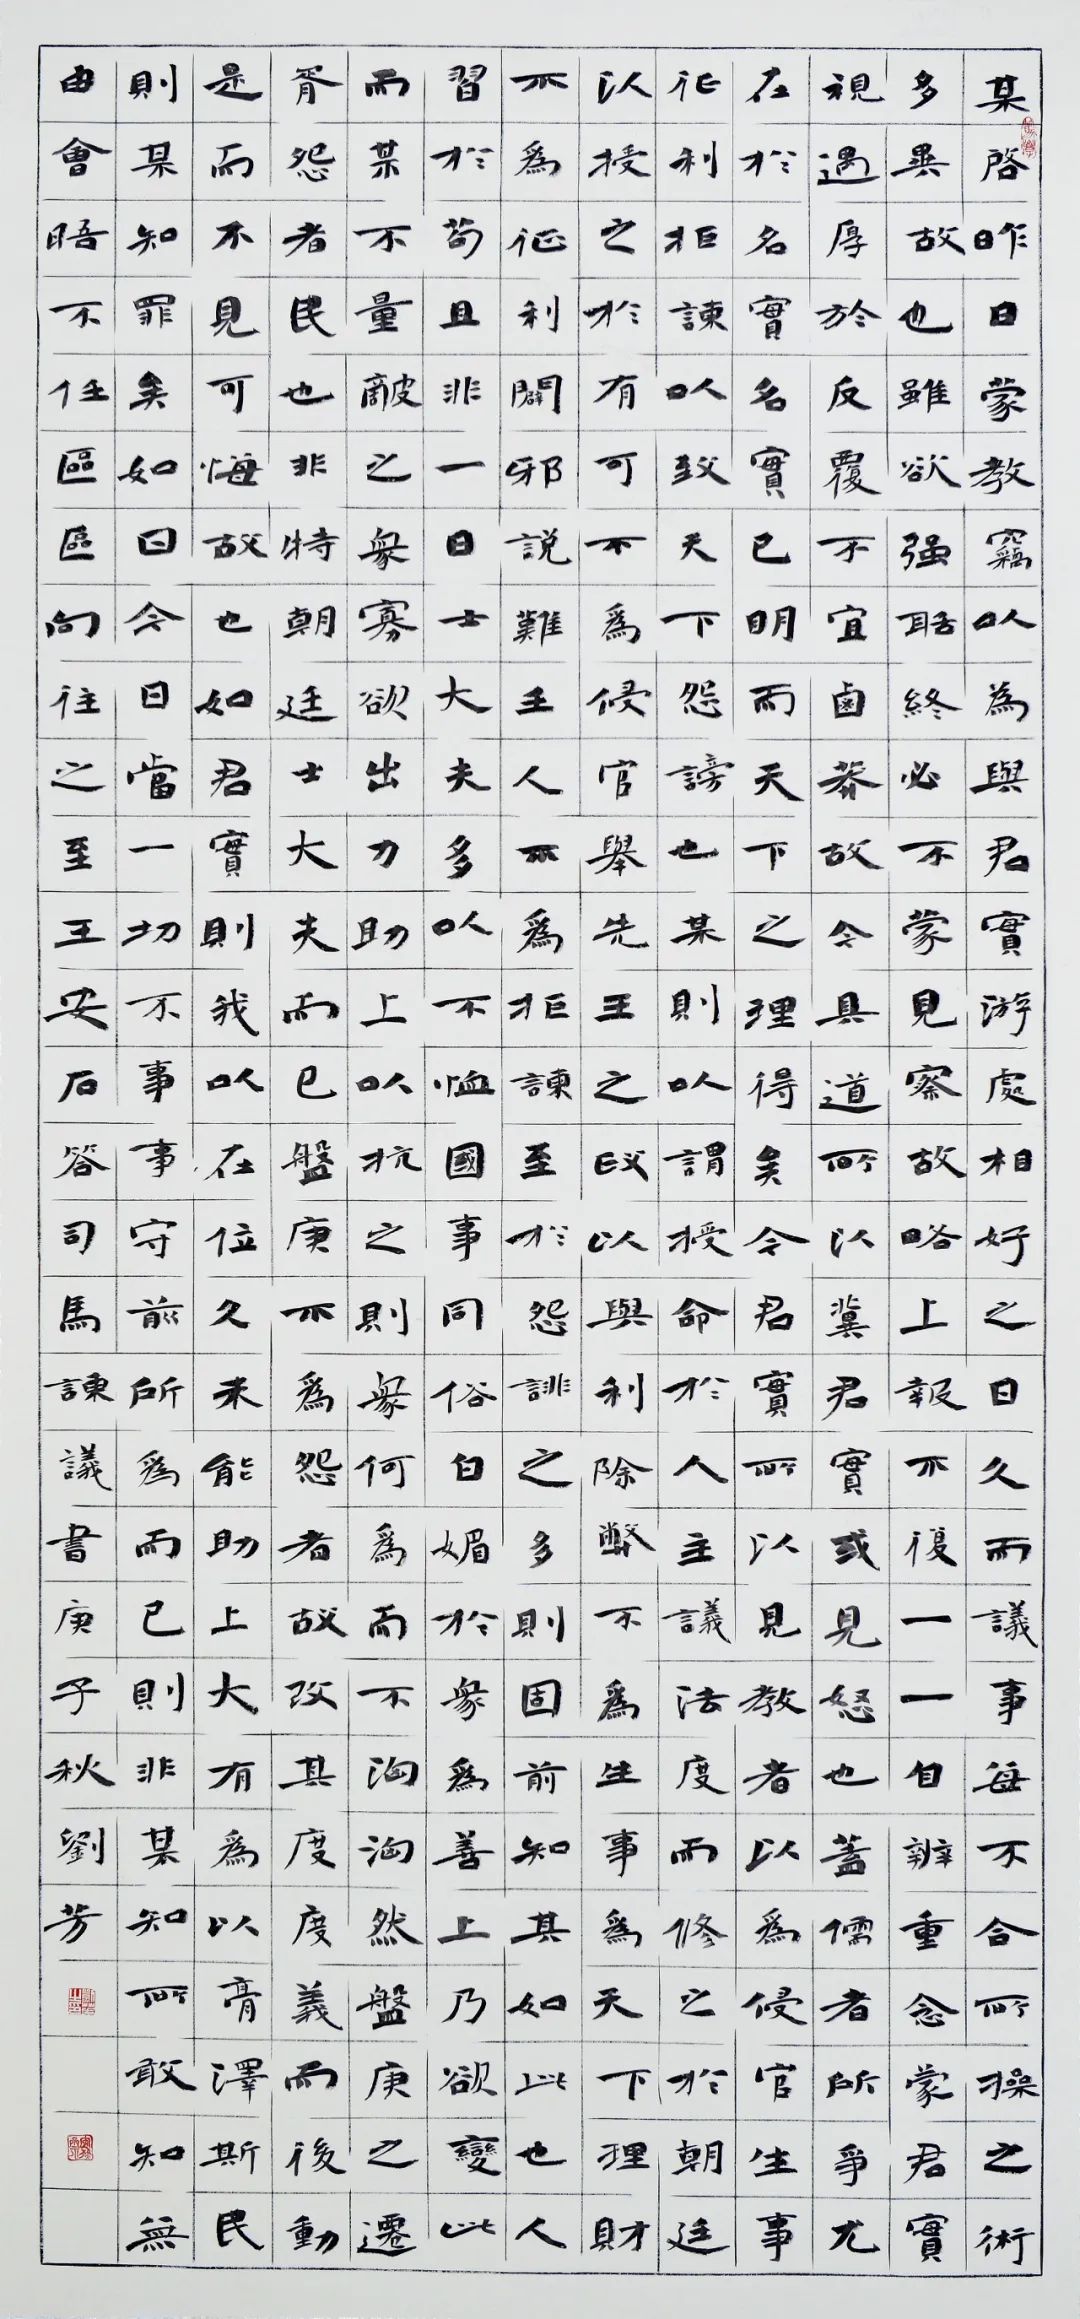 某啓昨日蒙教竊以為與君實游處相好之日久而議事每不合所操之術
多異故也雖欲强聒終必不蒙見察故略上報不復一一自辨重念蒙君實
視遇厚於反覆不宜鹵莽故今具道所以冀君實或見恕也蓋儒者所爭尤
在於名實名實已明而天下之理得矣今君實所以見教者以為侵官生事
征利拒諫以致天下怨謗也某則以謂授命於人主議法度而修之於朝廷
以授之於有可不為侵官舉先王之政以與利除弊不為生事為天下理財
不為征利闢邪說難壬人不為拒諫至於怨誹之多則固前知其如此也人
習於苟且非一日士大夫多以不恤國事同俗自媚於衆為善上乃欲變此
而某不量敵之衆寡欲出力助上以抗之則衆何為而不洶洶然盤庚之遷
胥怨者民也非特朝廷士大夫而已盤庚不為怨者故改其度度義而後動
是而不見可悔故也如君實則我以在位久未能助上大有為以膏澤斯民
則某知罪矣如曰今日當一切不事事守前所為而已則非某知所敢知無
由會晤不任區區向往之至王安石答司馬諫議書庚子秋劉芳